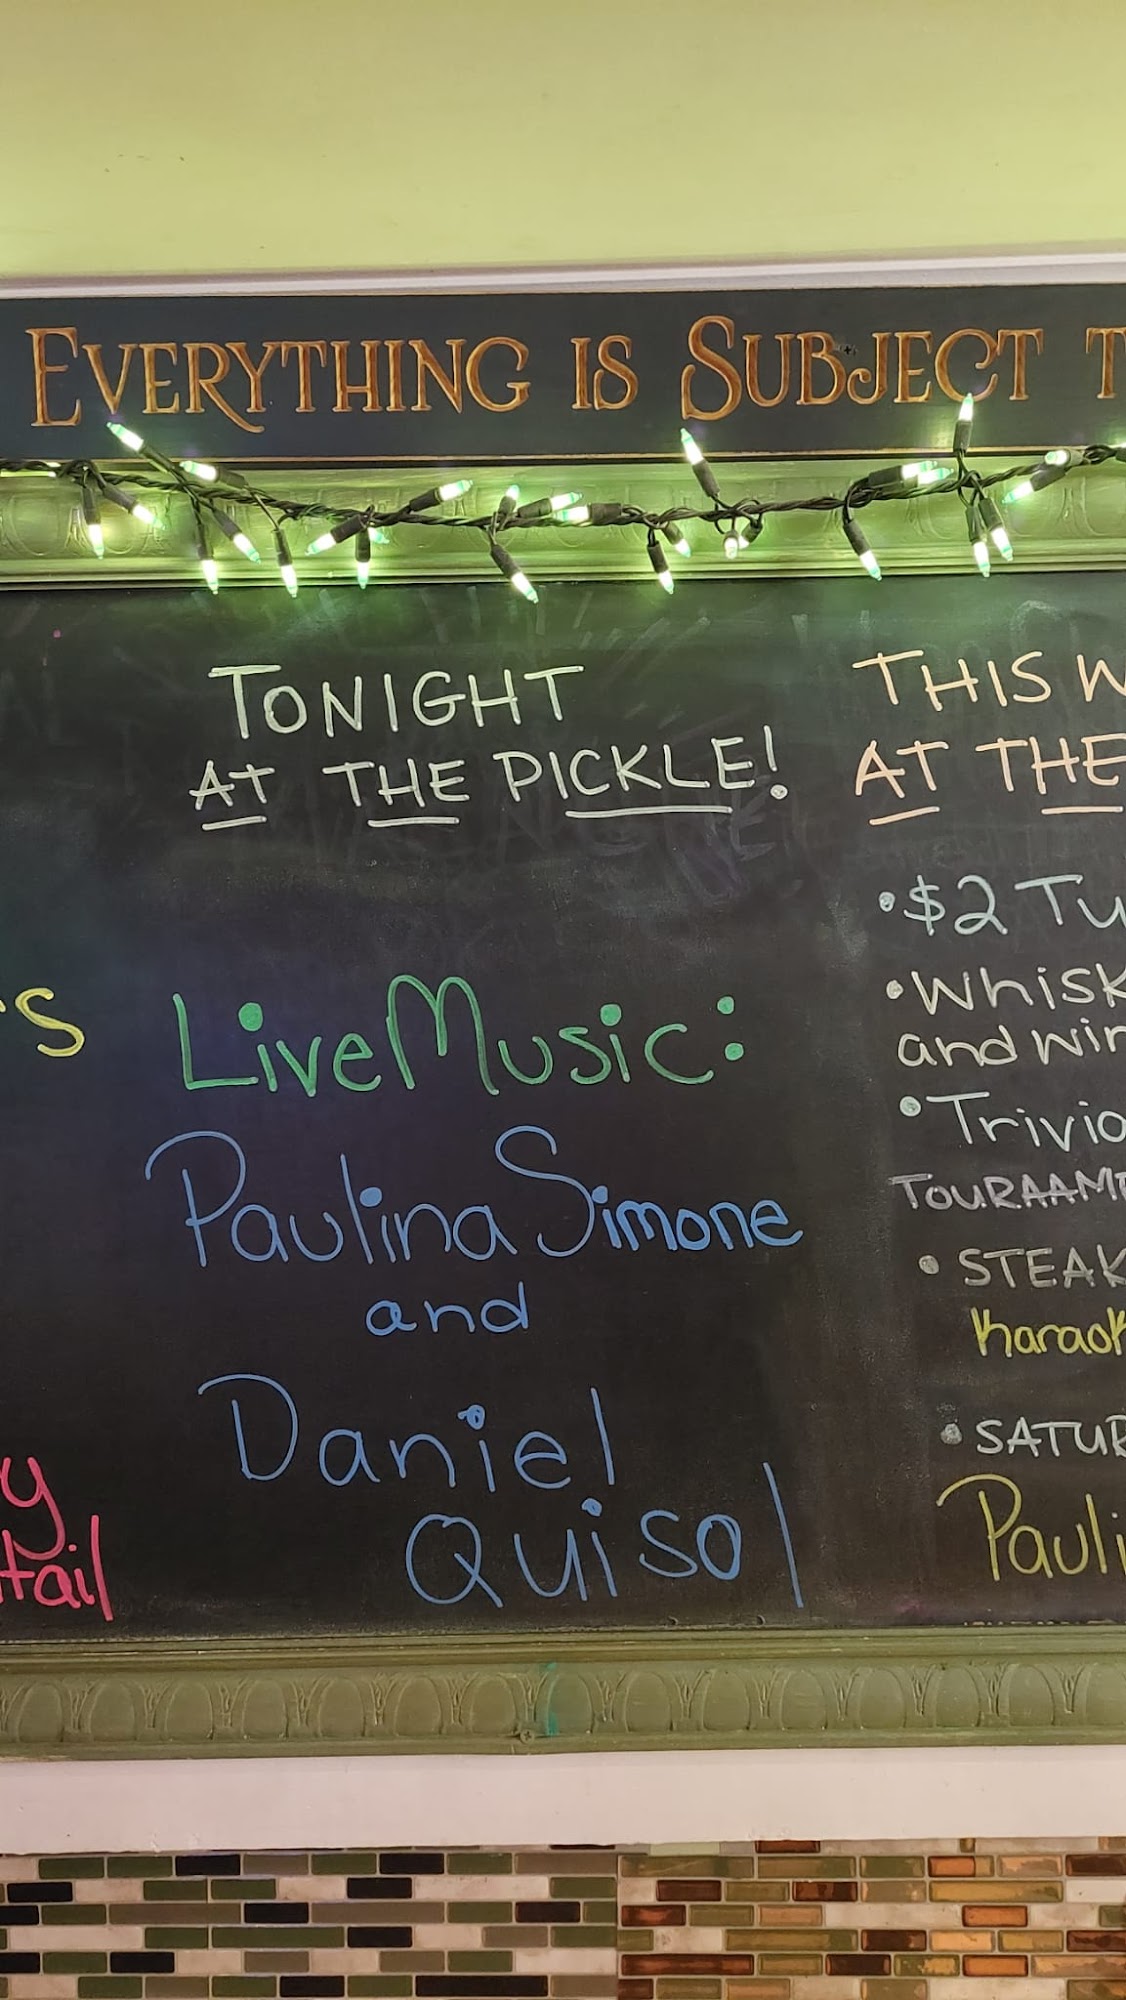 EVERYTHING IS SUBJECT T
TONIGHT
AT THE PICKLE!
Live Music:
Paulina Simone
and
Daniel
Quisol
's
y
tail
THIS W
AT THE
•$2 Tu
•Whisk
and win
•Trivia
TOURAAME
•STEAK
Karaok
•SATUR
Pauli